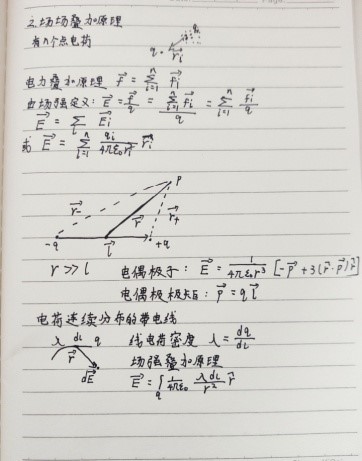 2. 场场叠加原理
有n个点电荷
q r⃗i qi
电力叠加原理 f⃗ = ∑ⁿᵢ₌₁ f⃗i
由场强定义: E⃗ = f⃗/q = ∑ⁿᵢ₌₁ f⃗i / q = ∑ⁿᵢ₌₁ f⃗i/q
E⃗ = ∑ᵢ E⃗i
或 E⃗ = ∑ⁿᵢ₌₁ qi/(4πε₀r²) r⃗i
P
r⃗- r⃗ r⃗+
-q l⃗ +q
r >> l 电偶极子: E⃗ = 1/(4πε₀r³) [-P⃗ + 3(r̂·P⃗)r̂]
电偶极极矩: P⃗ = q l⃗
电荷连续分布的带电线
λ dl q 线电荷密度 λ = dq/dl
r⃗ 场强叠加原理
dE⃗ E⃗ = ∫q 1/(4πε₀) λdl/r² r̂